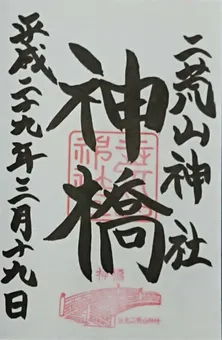 二荒山神社
神橋
平成二十九年三月十九日
神橋